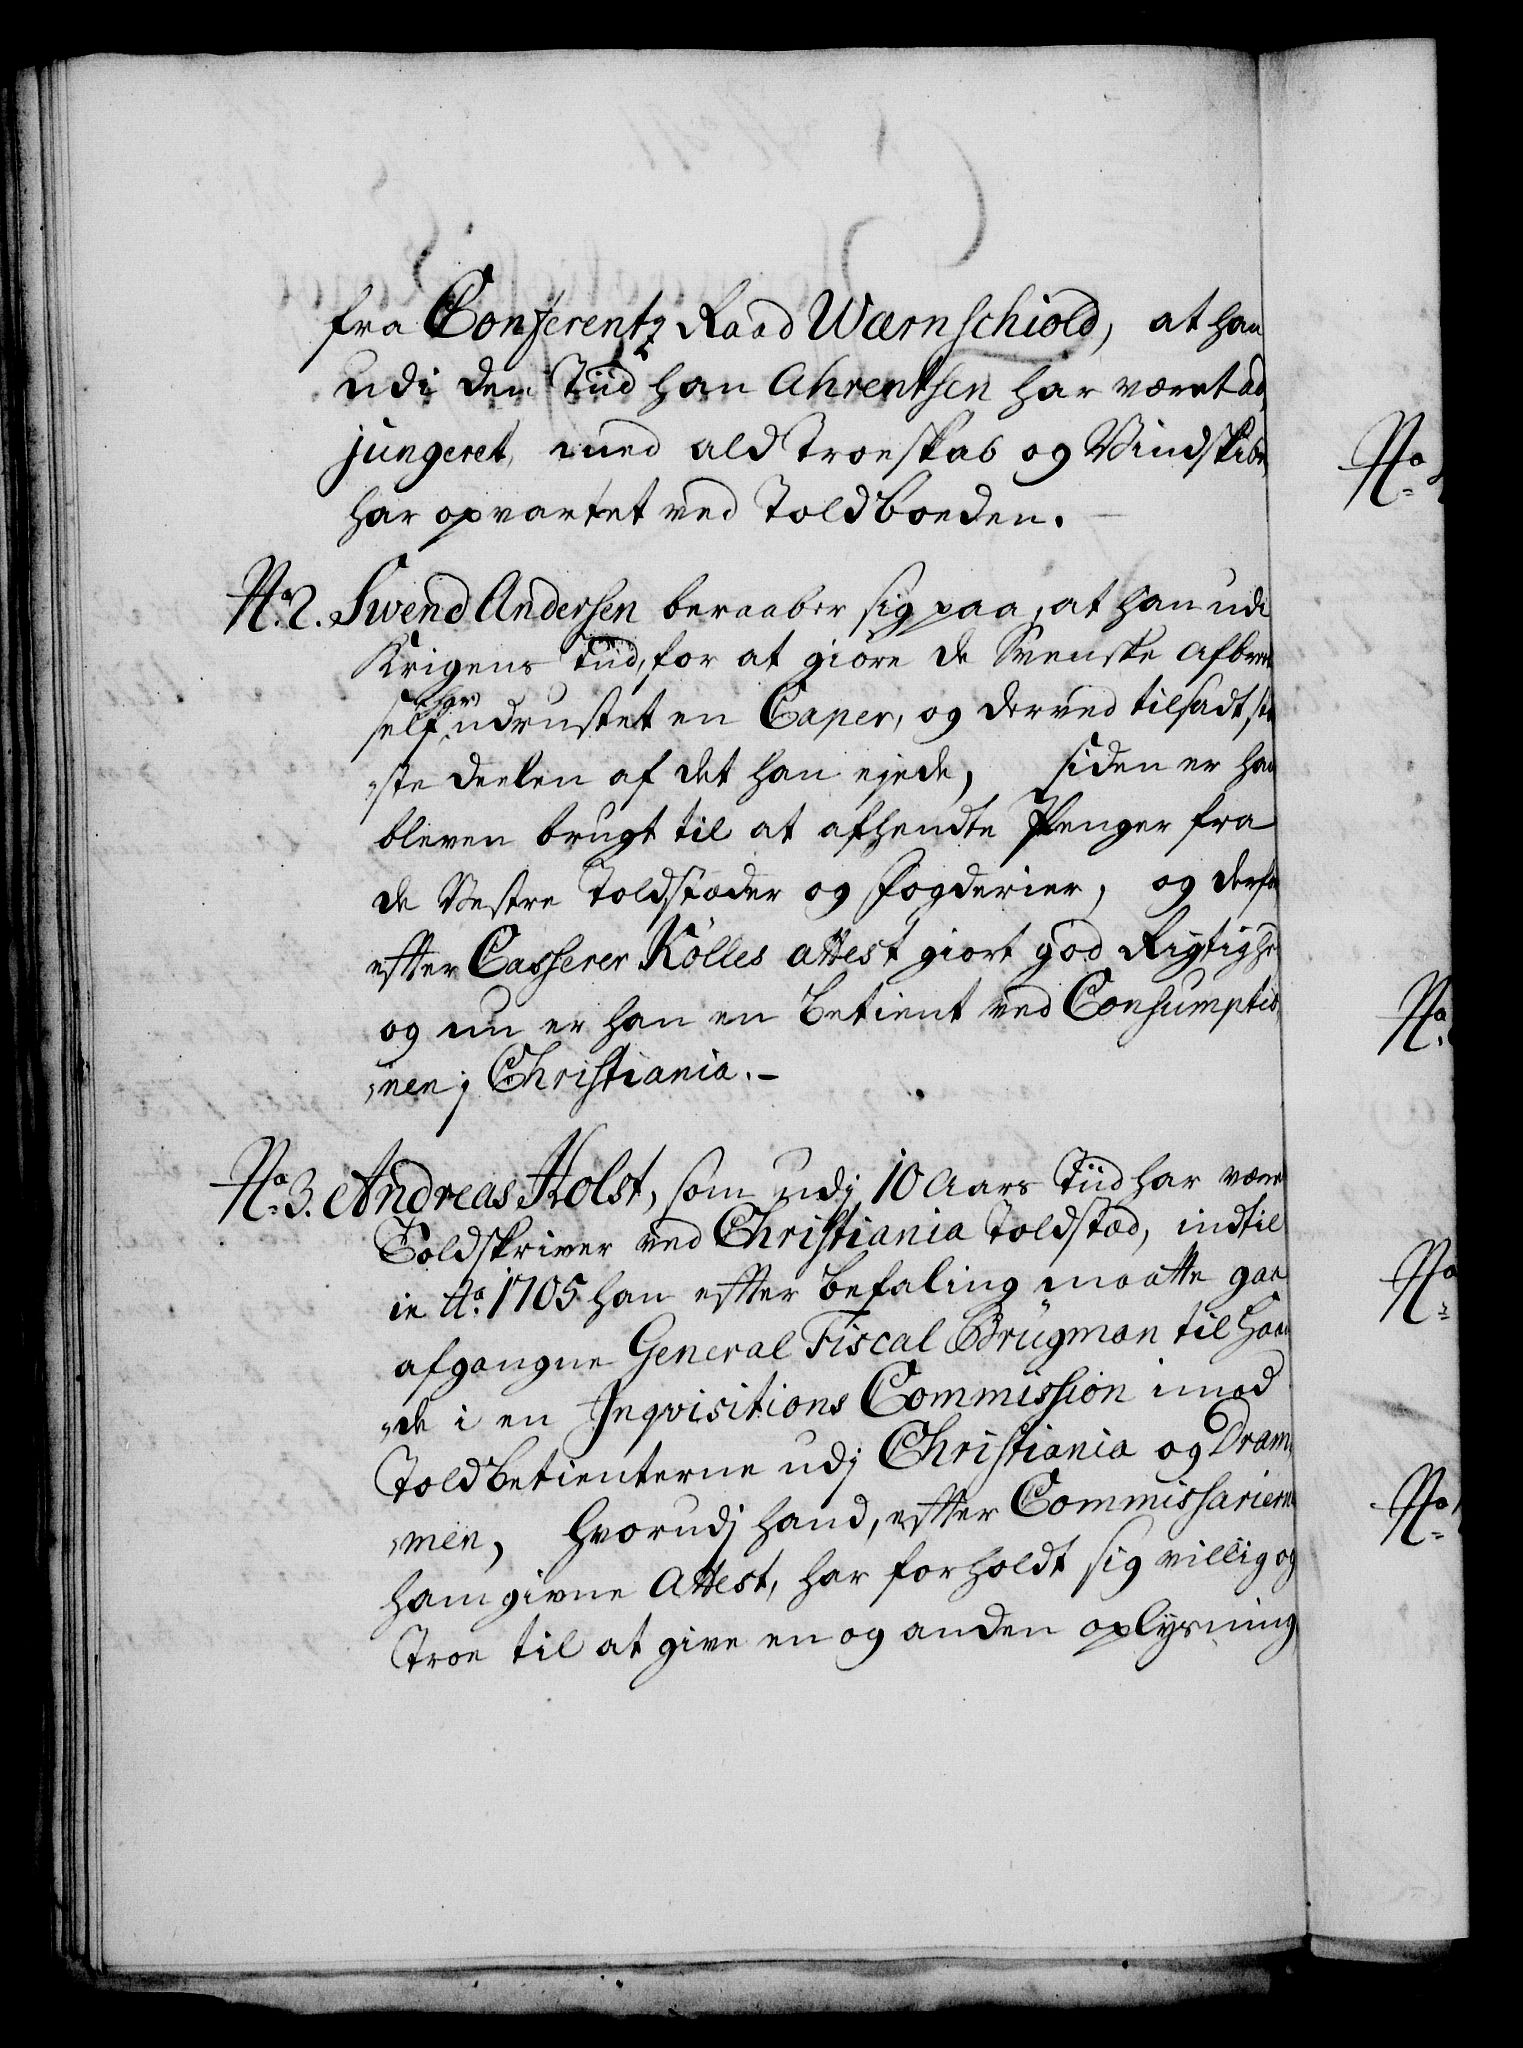 fra Conferentz Raad Wærnschiold, at han
udi den Tiid han Ahrentsen har været ad,
jungeret, med ald Troeskab og Vindskibe,
har opvartet ved Toldboeden.
No. 2. Swend Andersen beraaber sig paa, at han udi
Krigens Tiid, for at giöre de Svenske Afbræk
self har udrustet en Caper, og derved tilsadt
ste deelen af det han ejede, siden er han
bleven brugt til at afhendte Penger fra
de Vestre Toldstæder og Fogderier, og derfor
efter Casserer Kölles attest giort god Rigtighed
og nu er han en betient ved Consumptio,
,nen j Christiania.-
No. 3. Andreas Holst, som udj 10 Aars Tiid har været
Toldskriver ved Christiania Toldsted, indtil
in Ao. 1705 han efter befaling maatte gaae
afgangne General Fiscal Brügman til Haan
,de i en Inqvisitions Commission imod
Toldbetienterne udj Christiania og Dram,
,men, hvorudj hand, efter Commissariernes
ham givne Attest, har forholdt sig villig og
Troe til at give en og anden oplysning
No
No.
No
No